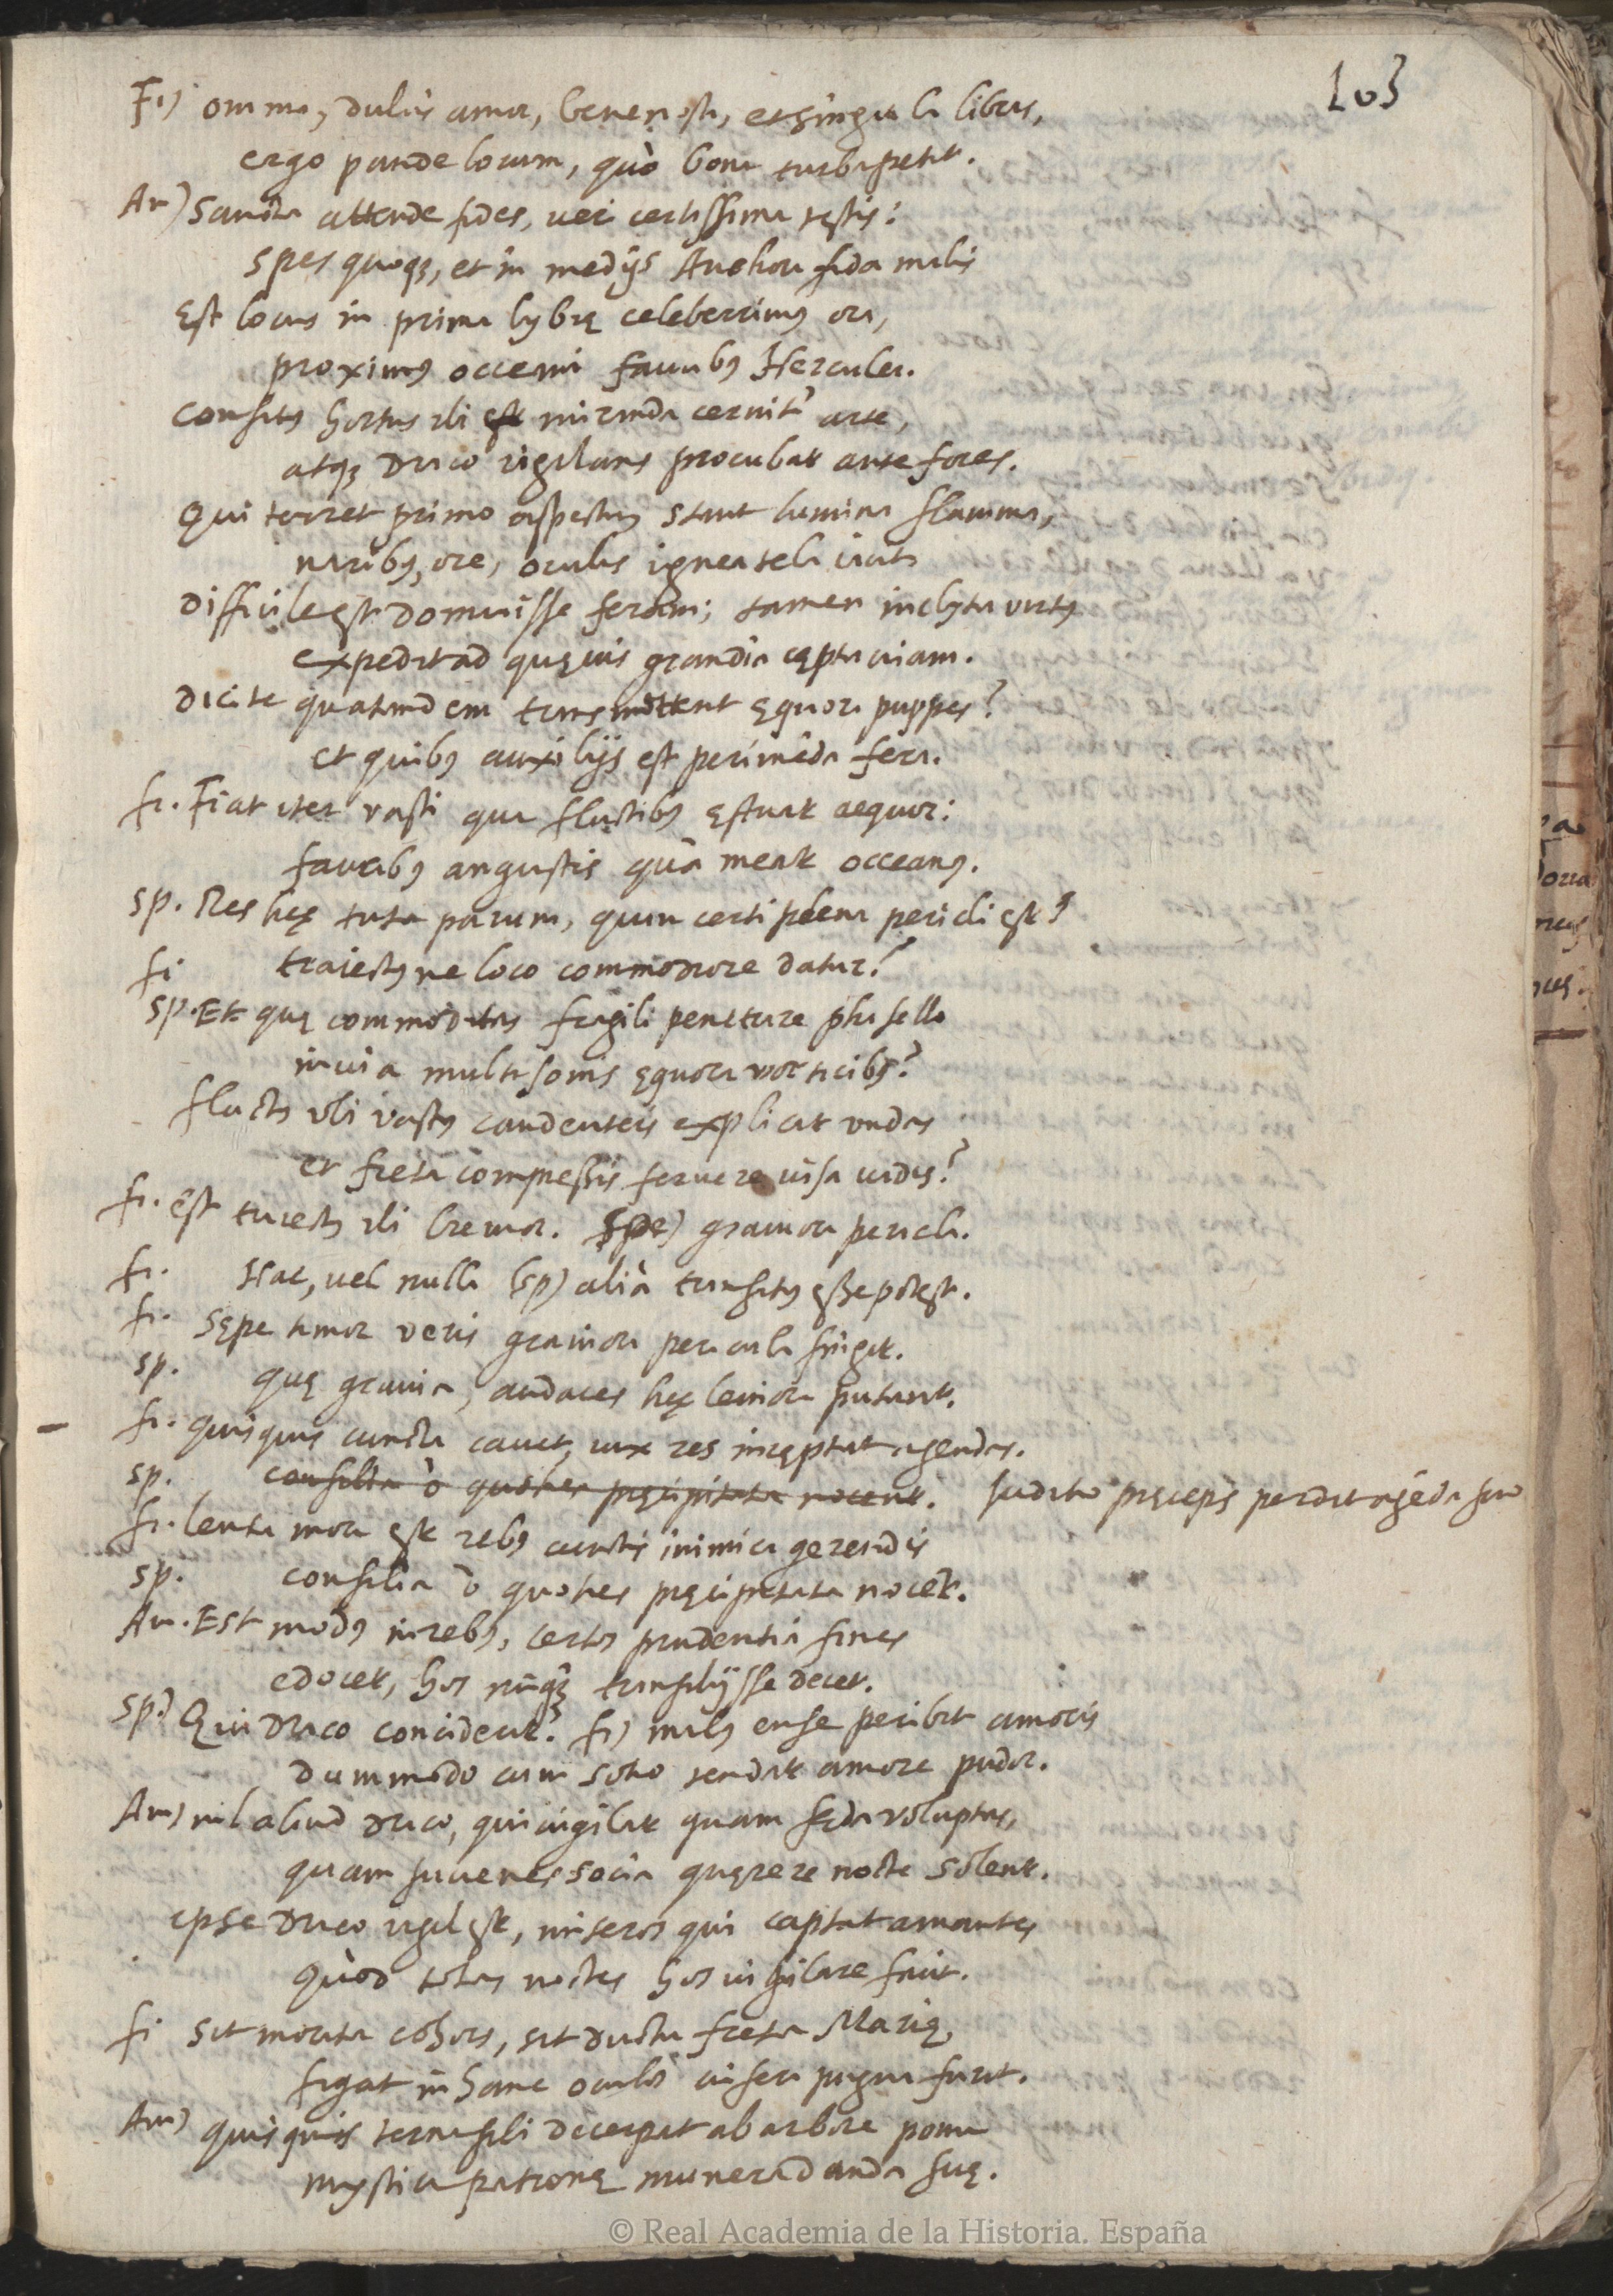 103
Fi) omma, dulcis amor, bene nosti, et singula libras,
ergo pande locum, quò bona turba petat.
Am) Sancta attende fides, veri certissima testis:
Spes quoqȝ, et in medijs Anchora fida malis
Est locus in prima lybię celeberrimꝰ ora,
proximꝰ occeani faucibꝰ Herculea.
Consitꝰ hortus ibi miranda cernit᷑ arte,
atqȝ draco vigilans procubat ante fores.
Qui terret primo aspectu, stant lumina flamma,
naribꝰ, ore, oculis ignea tela iacit
Difficile est domuisse feram; tamen inclyta virtꝰ
expedit ad quęvis grandia cępta viam.
Dicite quatandem transmittent ęquora puppes?
et quibꝰ auxilijs est perimēda fera.
fi. Fiat iter vasti qua fluctibꝰ ęstuat aequor:
faucibꝰ angustis quà meat occeanꝰ.
Sp. Res hęc tuta parum, quin certi plena pericli est?
fi traiectꝰ ne loco commodiore datur?
Sp. Et quę commoditas fragili penetrare phasello
invia multisonis ęquora vorticibꝰ?
fluctꝰ ubi vastꝰ candenteis explicat undas
et freta compressis fervere visa vadis?
fi. est traiectꝰ ibi brevior. Spe) graviora pericla.
fi. Hac, vel nulla (sp) alià transitꝰ esse potest.
fi. Sępe timor veris graviora pericula fingit.
Sp. quę gravia, audaces hęc leviora putant.
fi. quisquis cuncta cavet, vix res incęptat agendas.
Sp. consilia ò quoties pręcipitata nocent. Iudicio pręceps perdit agēda suo
fi. lenta mora est rebꝰ cunctis inimica gerendis
Sp. consilia ò quoties pręcipitata nocēt.
Am. Est modꝰ in rebꝰ, certos prudentia fines
edocet, hos nūqȝ transilijsse decet.
Sp.) Qui draco concidetur? fi) malꝰ ense peribit amoris
dummodo cum socio tendat amore pudor.
Am) nil aliud draco, qui vigilat quam fęda voluptas,
quam iuvenes socia quęrere nocte solent.
ipse draco vigil est, miseros qui captat amantes
quòd totas noctes hos vigilare facit.
fi sit morata cohors, sit ductu freta Marię,
figat in hanc oculos cū fera pugna furit.
Am) quisquis terna sibi decerpat ab arbore poma
mystica patronę munera danda suę.
© Real Academia de la Historia. España